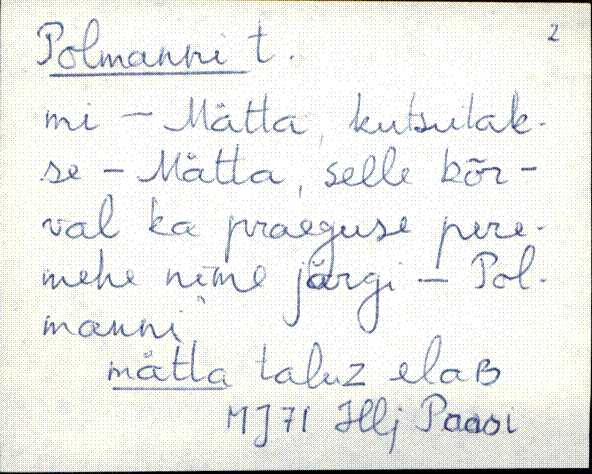 2
Polmanni t.
mi - Mätta, kutsutak-
se - Mätta, selle kõr-
val ka praeguse pere-
mehe nime järgi - Pol-
manni
mätta taluz elaB
MJ71 Hlj Paasi